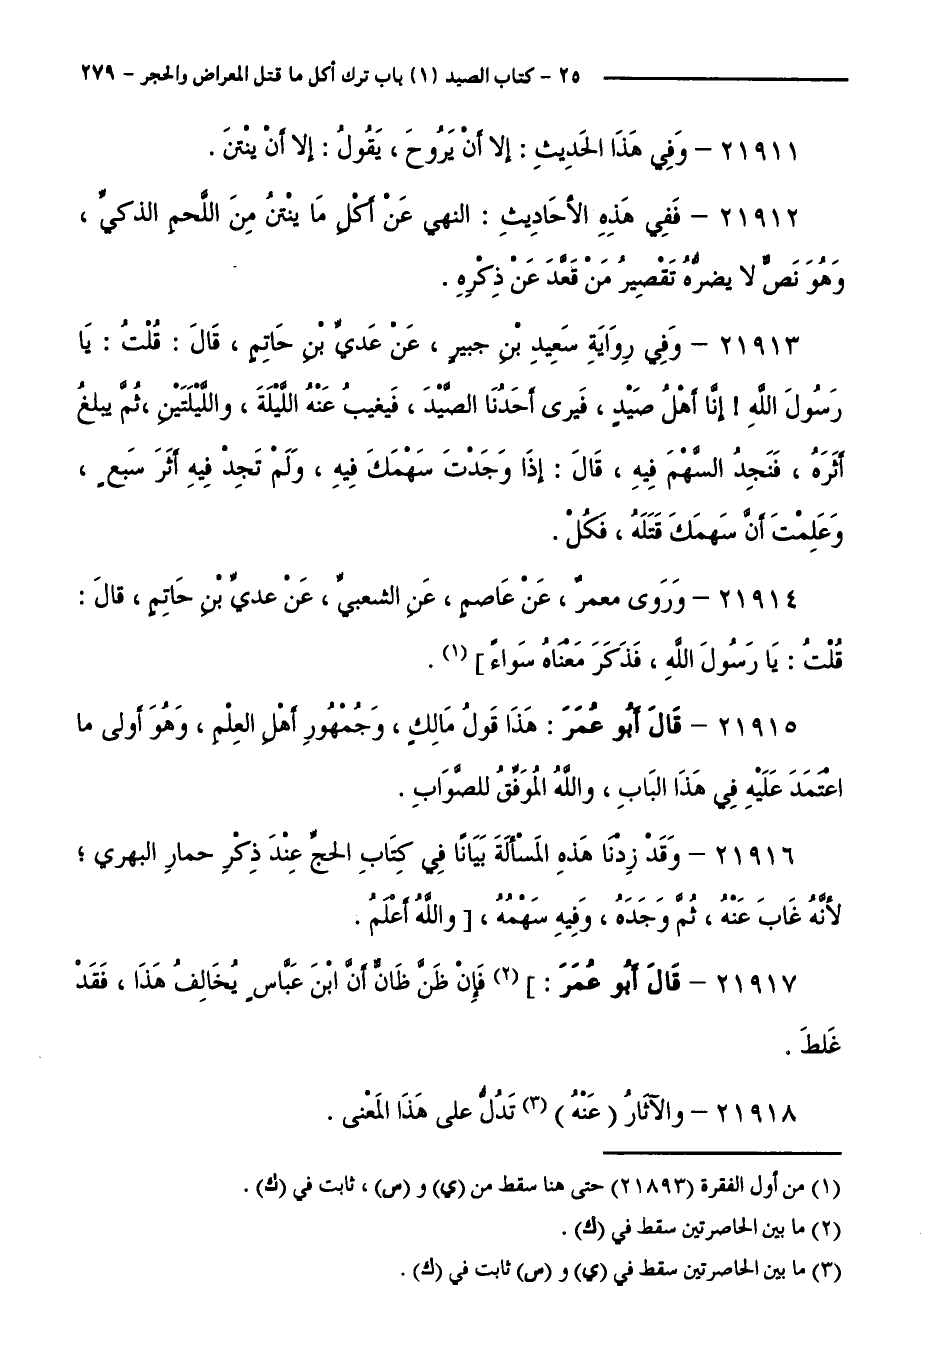 ٢٥ - كتاب الصيد (١) باب ترك أكل ما قتل المعراض والحجر - ٢٧٩
٢١٩١١ - وَفِي هَذَا الحَدِيثِ : إلا أَنْ يَرُوحَ ، يَقُولُ : إلا أَنْ يَنْتنَ .
٢١٩١٢ - فَفِي هَذِهِ الأحَادِيثِ : النهي عَنْ أَكْلِ مَا يَنْتنُ مِنَ اللَّحمِ الذكيِّ ،
وَهُوَ نَصٌّ لا يضرُّهُ تَقْصِيرُ مَنْ قَعَّدَ عَنْ ذِكْرِهِ .
٢١٩١٣ - وَفِي رِوَايَةِ سَعِيدِ بْنِ جبيرٍ ، عَنْ عَديِّ بْنِ حَاتِمٍ ، قَالَ : قُلْتُ : يَا
رَسُولَ اللَّهِ ! إنَّا أَهْلُ صَيْدٍ ، فَيرى أَحَدُنَا الصَّيْدَ ، فَيغيبُ عَنْهُ اللَّيْلَةَ ، واللَّيْلَتَيْنِ ،ثُمَّ يبلغُ
أَثَرَهُ ، فَنَجِدُ السَّهْمَ فِيهِ ، قَالَ : إذَا وَجَدْتَ سَهْمَكَ فِيهِ ، وَلَمْ تَجِدْ فِيهِ أَثَرَ سَبعٍ ،
وَعَلِمْتَ أَنَّ سَهمَكَ قَتَلَهُ ، فَكُلْ .
٢١٩١٤ - وَرَوَى معمرٌ ، عَنْ عَاصمٍ ، عَنِ الشعبيِّ ، عَنْ عديِّ بْنِ حَاتِمٍ ، قالَ :
قُلْتُ : يَا رَسُولَ اللَّهِ ، فَذَكَرَ مَعْنَاهُ سَواءً ] (١) .
٢١٩١٥ - قَالَ أَبُو عُمَرَ : هَذَا قَولُ مَالِكٍ ، وَجُمْهُورِ أَهْلِ العِلْمِ ، وَهُوَ أَولى ما
اعْتَمَدَ عَلَيْهِ فِي هَذَا البَابِ ، واللَّهُ المُوَفِّقُ للصَّوَابِ .
٢١٩١٦ - وَقَدْ زِدْنَا هَذِهِ المَسْأَلَةَ بَيَانًا فِي كِتَابِ الحجِّ عِنْدَ ذِكْرِ حمارِ البهري ؛
لأنَّهُ غَابَ عَنْهُ ، ثُمَّ وَجَدَهُ ، وَفِيهِ سَهْمُهُ ، [ واللَّهُ أَعْلَمُ .
٢١٩١٧ - قَالَ أَبُو عُمَرَ : ] (٢) فَإِنْ ظَنَّ ظَانٌّ أَنَّ ابْنَ عَبَّاسٍ يُخَالِفُ هَذَا ، فَقَدْ
غَلطَ .
٢١٩١٨ - والآثَارُ ( عَنْهُ ) (٣) تَدُلُّ على هَذَا المَعْنى .
(١) من أول الفقرة (٢١٨٩٣) حتى هنا سقط من (ي) و (س) ، ثابت في (ك) .
(٢) ما بين الحاصرتين سقط في (ك) .
(٣) ما بين الحاصرتين سقط في (ي) و (س) ثابت في (ك) .